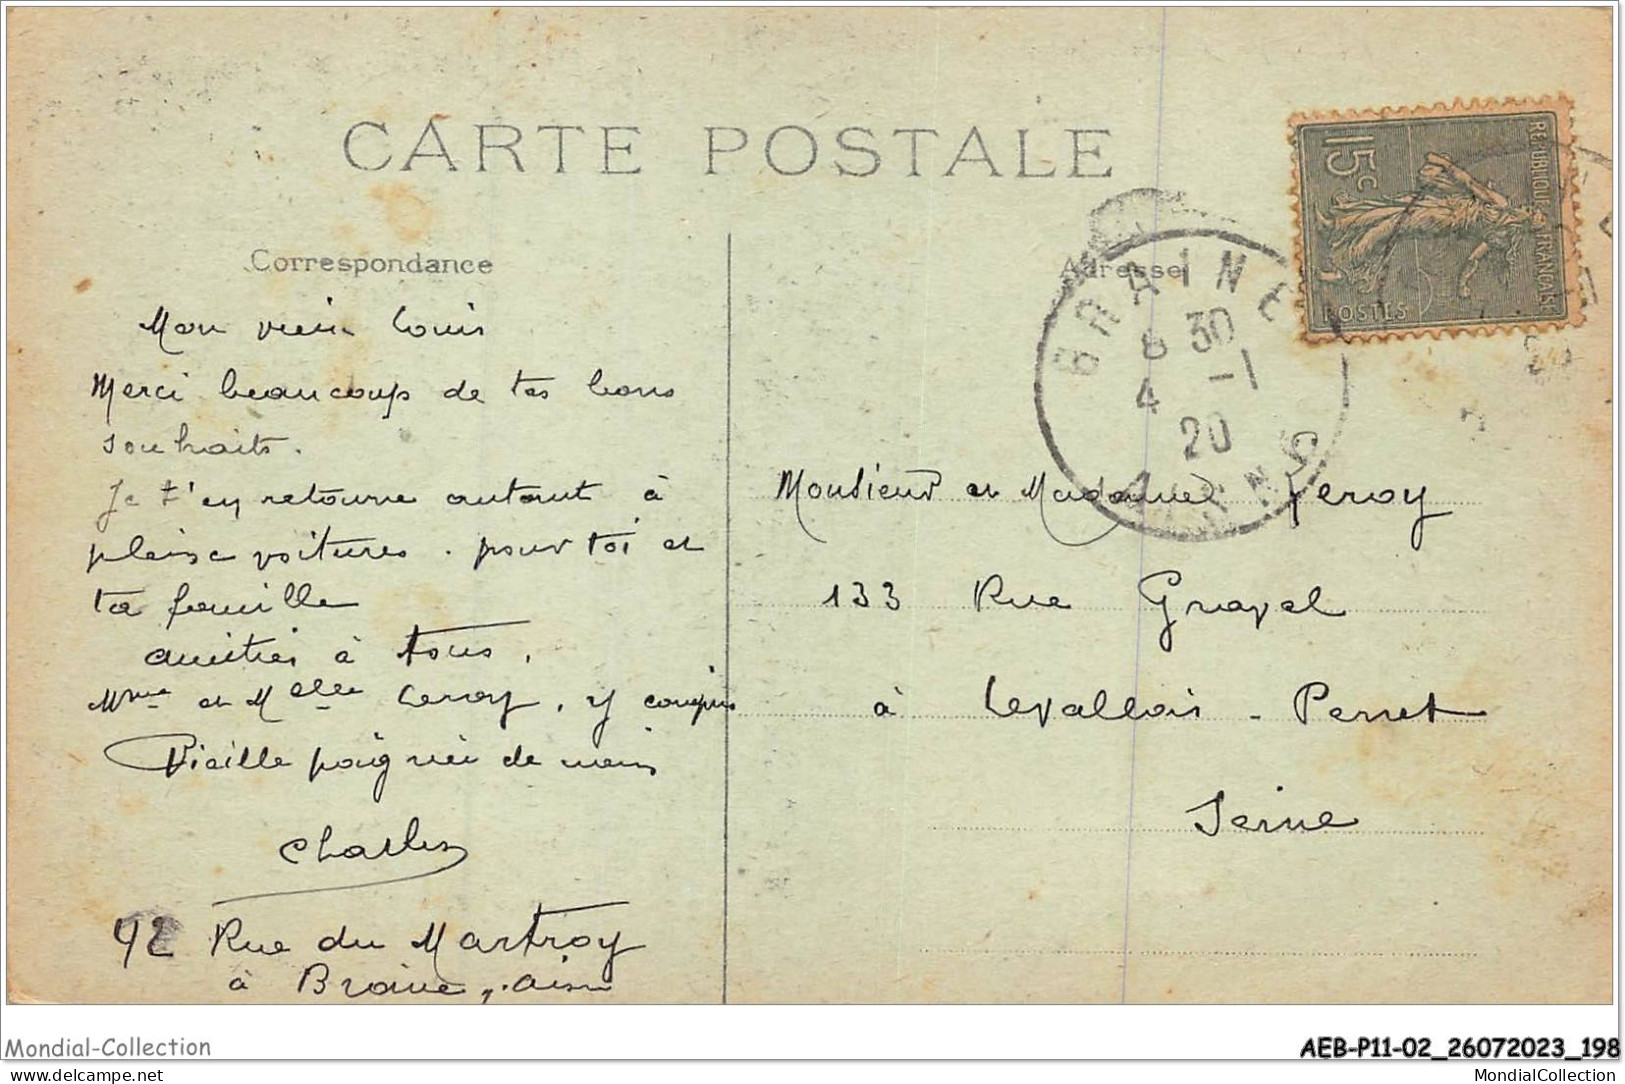 CARTE POSTALE
Correspondance
Mon vieux Louis
Merci beaucoup de tes bons
souhaits.
Je t'en retourne autant à
pleine voitures. pour toi et
ta famille
amitiés à tous,
Mme et Melle Leroy, y compris
Vieille poignée de mains
Charles
42 Rue du Martroy
à Braine, Aisne
Adresse
RÉPUBLIQUE FRANÇAISE
15c
POSTES
BRAINE
8 30
4 -1
20
AISNE
Monsieur et Madame Leroy
133 Rue Gravel
à Levallois-Perret
Seine
Mondial-Collection
AEB-P11-02_26072023_198
delcampe.net
MondialCollection